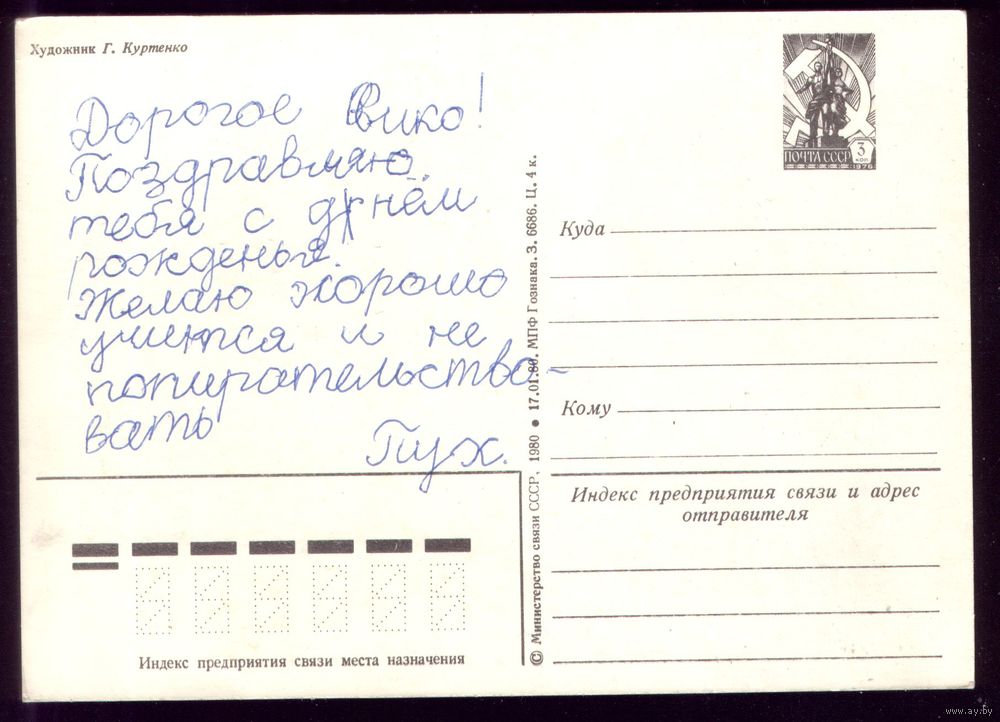 Художник Г. Куртенко
Дорогое Вико!
Поздравляю
тебя с днём
рожденья.
Желаю хорошо
учится и не
попирательство-
вать
Пух.
ПОЧТА СССР
3
КОП
1976
Куда
Кому
Индекс предприятия связи и адрес
отправителя
© Министерство связи СССР, 1980 ● 17.01.80. МПФ Гознака. З. 6686. Ц. 4 к.
Индекс предприятия связи места назначения
www.ay.by